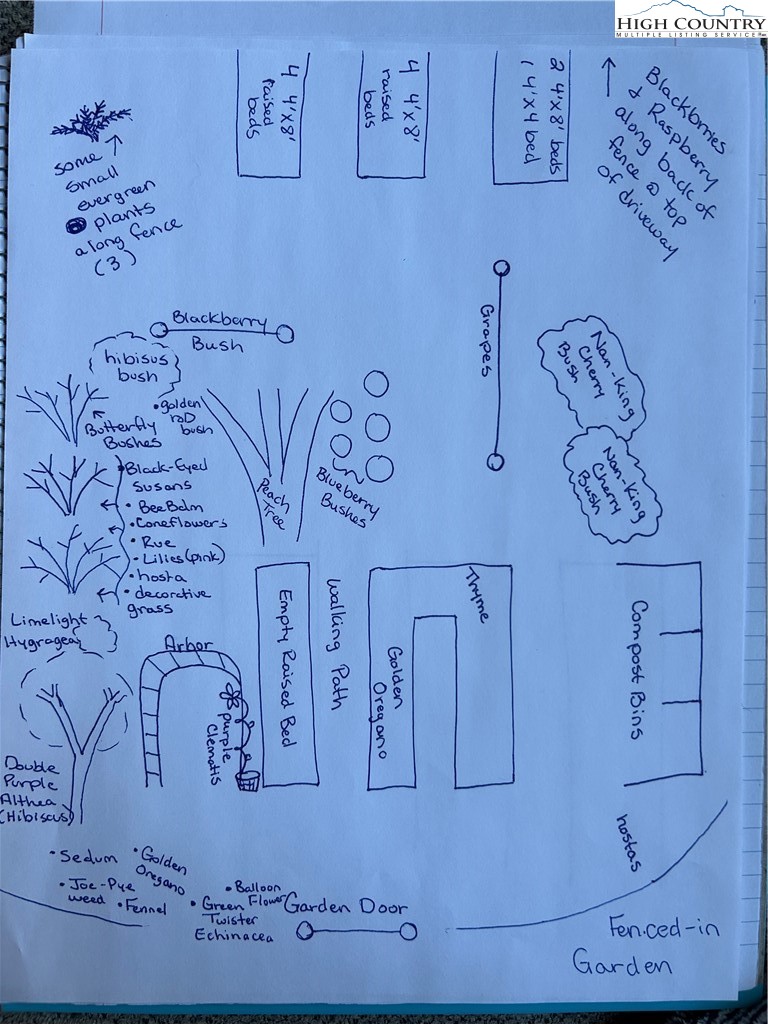 HIGH COUNTRY
MULTIPLE LISTING SERVICE
4 4'x8'
raised
beds
4 4'x8'
raised
beds
2 4'x8' beds
1 4'x4' bed
Blackbrries
& Raspberry
along back of
fence @ top
of driveway
some
small
evergreen
plants
along fence
(3)
Blackberry
Bush
Grapes
Nan-King
Cherry
Bush
Nan-King
Cherry
Bush
hibisus
bush
• golden
rod
bush
Butterfly
Bushes
Peach
Tree
Blueberry
Bushes
• Black-Eyed
Susans
• Bee Balm
• Coneflowers
• Rue
• Lilies (pink)
• hosta
• decorative
grass
Limelight
Hygragea
Arbor
purple
clematis
Empty Raised Bed
Walking Path
Golden
Oregano
Thyme
Compost Bins
Double
Purple
Althea
(Hibiscus)
hostas
• Sedum
• Golden
Oregano
• Joe-Pye
weed
• Fennel
• Balloon
Flower
• Green
Twister
Echinacea
Garden Door
Fenced-in
Garden